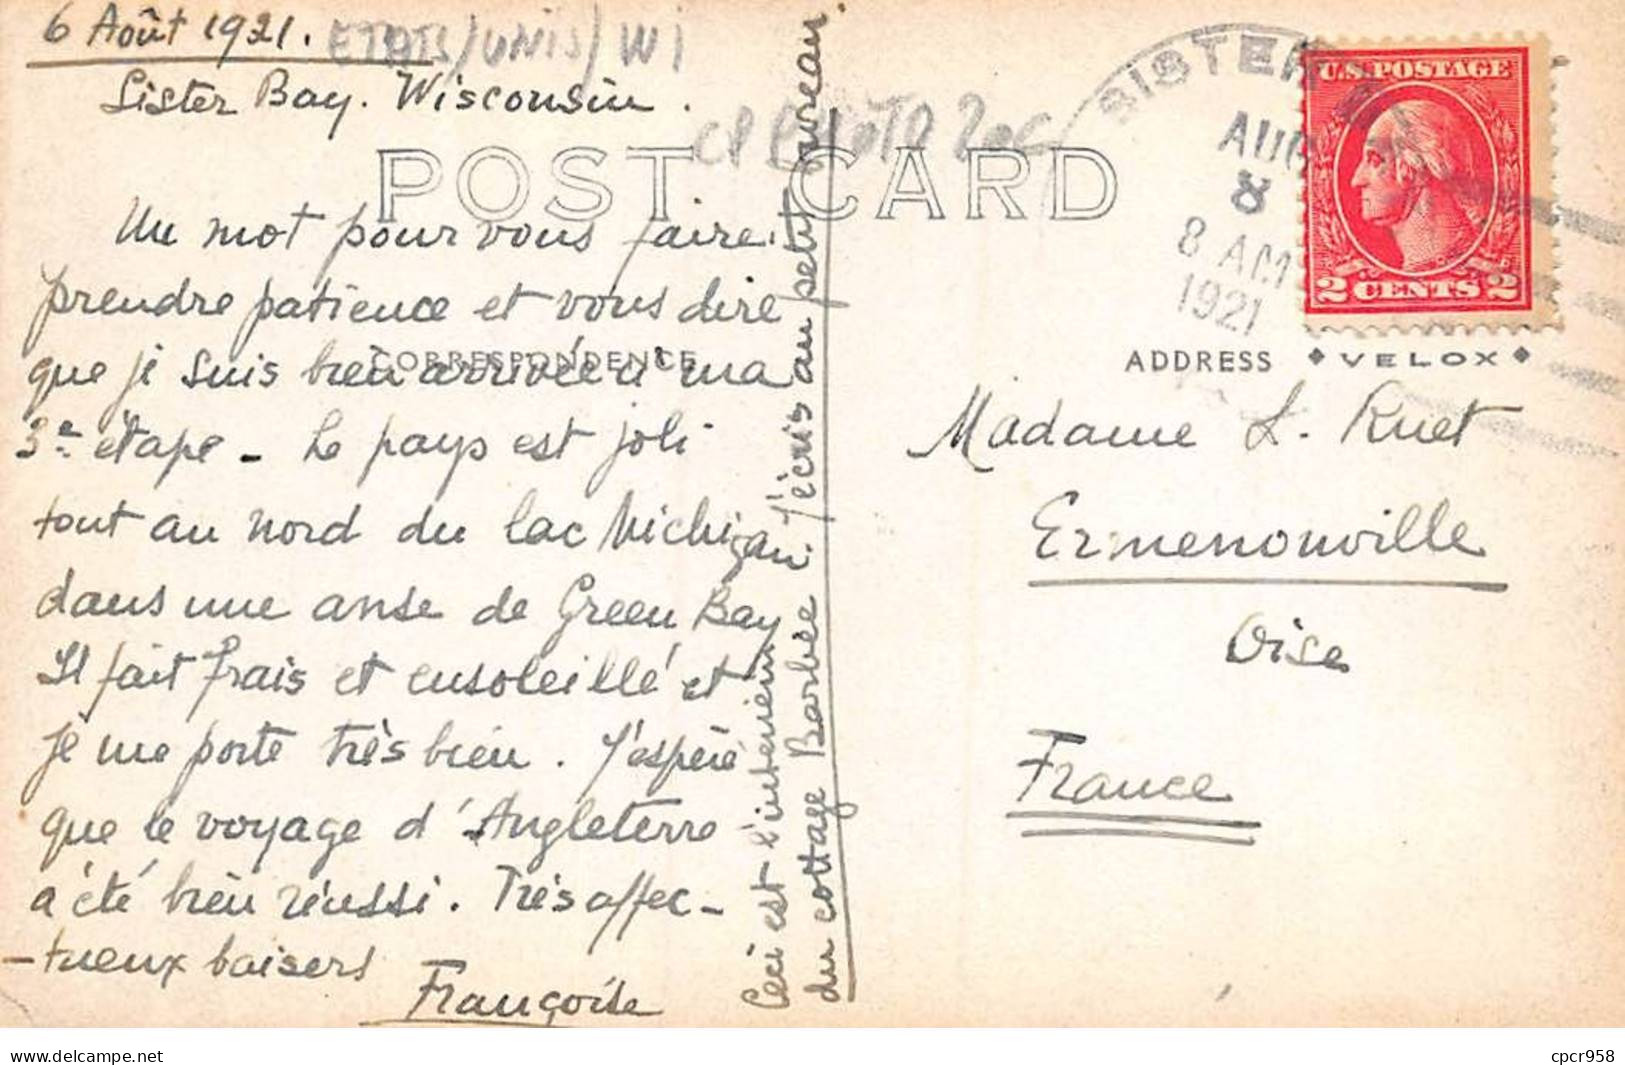 6 Août 1921.
ETATS/UNIS/WI
Sister Bay. Wisconsin.
POST CARD
Un mot pour vous faire
prendre patience et vous dire
que je suis bien arrivée à ma
3e étape - Le pays est joli
tout au nord du lac Michigan
dans une anse de Green Bay
Il fait frais et ensoleillé et
je me porte très bien. J'espère
que le voyage d'Angleterre
a été bien réussi. Très affec-
-tueux baisers
Françoise
CORRESPONDENCE
Ceci est l'intérieur
du cottage Barbée J'écris au petit bureau
SISTER
AUG
8
8 AM
1921
U.S. POSTAGE
2 CENTS 2
ADDRESS
VELOX
Madame L. Ruet
Ermenonville
Oise
France
www.delcampe.net
cpcr958